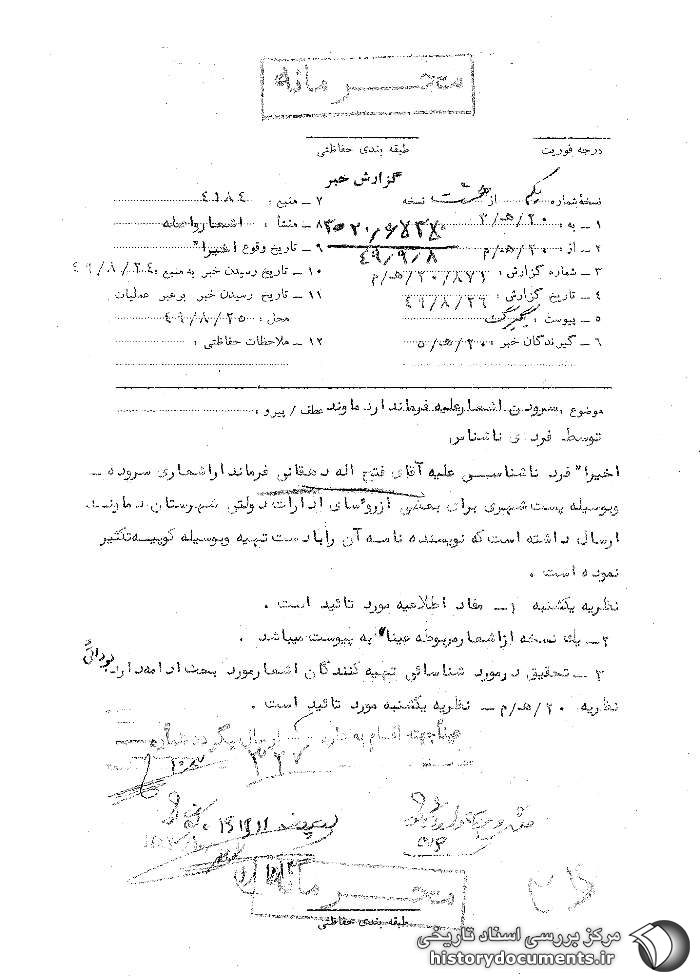 محرمانه
درجه فوریت
طبقه بندی حفاظتی
گزارش خبر
نسخه شماره یکم از هشت نسخه
۱ – به : ۲۰/ هـ/۳
۲ – از : ۲۰/ هـ/ م
۳ – شماره گزارش : ۲۰/۸۷۲/ هـ/ م
۴ – تاریخ گزارش : ۴۹/۸/۲۶
۵ – پیوست : یکبرگ
۶ – گیرندگان خبر : ۲۰/ هـ/ ۵
۳۰۲۰۶۷۳۷
۴۹/۹/۸
۷ – منبع : ۴۱۸۴
۸ – منشأ : اشعار واصله
۹ – تاریخ وقوع اخیرا"
۱۰ – تاریخ رسیدن خبر به منبع ۴۹/۸/۲۴
۱۱ – تاریخ رسیدن خبر برهبر عملیات
محل : ۴۹/۸/۲۵
۱۲ – ملاحظات حفاظتی :
موضوع : سرودن اشعار علیه فرماندار دماوند عطف / پیرو :
توسط فردی ناشناس
اخیرا" فرد ناشناسی علیه آقای فتح اله دهقانی فرماندار اشعاری سروده –
وبوسیله پست شهری برای بعضی از روسای ادارات دولتی شهرستان دماوند
ارسال داشته است که نویسنده نامه آن را بادست تهیه وبوسیله کوپیه تکثیر
نموده است .
نظریه یکشنبه ۱– مفاد اطلاعیه مورد تائید است .
۲– یک نسخه از اشعار مربوطه عینا" به پیوست میباشد .
۳ – تحقیق در مورد شناسائی تهیه کنندگان اشعار مورد بحث ادامه دارد
نظریه ۲۰/ هـ/ م – نظریه یکشنبه مورد تائید است .
عینا جهت اقدام به
ارسال میگردد شماره
۳۲۷
محرمانه
طبقه بندی حفاظتی
مرکز بررسی اسناد تاریخی
historydocuments.ir